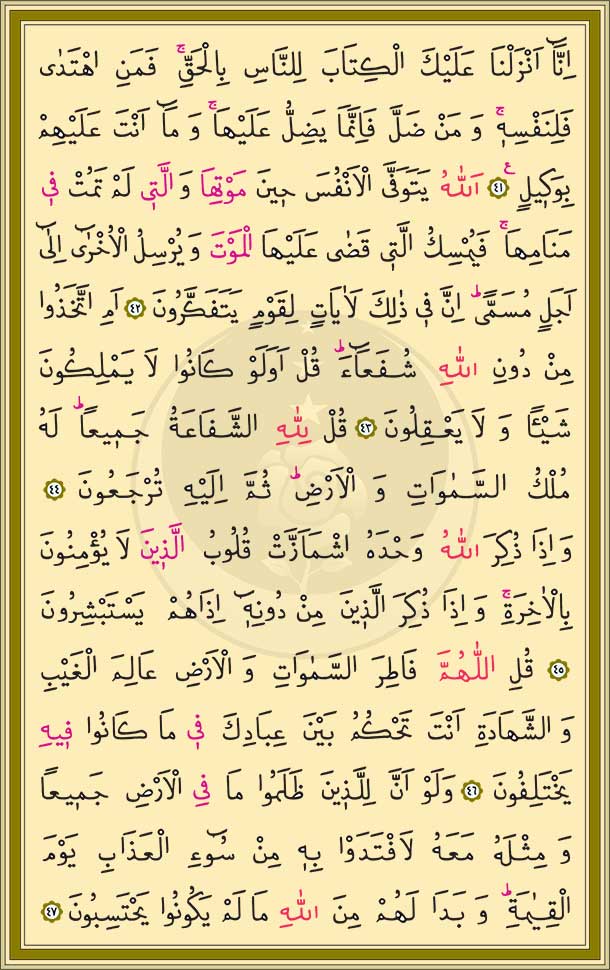 اِنَّٓا اَنْزَلْنَا عَلَيْكَ الْكِتَابَ لِلنَّاسِ بِالْحَقِّۚ فَمَنِ اهْتَدٰى
فَلِنَفْسِه۪ۚ وَ مَنْ ضَلَّ فَاِنَّمَا يَضِلُّ عَلَيْهَاۚ وَ مَٓا اَنْتَ عَلَيْهِمْ
بِوَك۪يلٍ ع ﴿٤١﴾ اَللّٰهُ يَتَوَفَّى الْاَنْفُسَ ح۪ينَ مَوْتِهَا وَ الَّت۪ي لَمْ تَمُتْ ف۪ي
مَنَامِهَاۚ فَيُمْسِكُ الَّت۪ي قَضٰى عَلَيْهَا الْمَوْتَ وَ يُرْسِلُ الْاُخْرٰٓى اِلٰٓى
اَجَلٍ مُسَمًّىۜ اِنَّ ف۪ي ذٰلِكَ لَاٰيَاتٍ لِقَوْمٍ يَتَفَكَّرُونَ ﴿٤٢﴾ اَمِ اتَّخَذُوا
مِنْ دُونِ اللّٰهِ شُفَعَٓاءَۜ قُلْ اَوَلَوْ كَانُوا لَا يَمْلِكُونَ
شَيْـًٔا وَ لَا يَعْقِلُونَ ﴿٤٣﴾ قُلْ لِلّٰهِ الشَّفَاعَةُ جَم۪يعًاۜ لَهُ
مُلْكُ السَّمٰوَاتِ وَ الْاَرْضِۜ ثُمَّ اِلَيْهِ تُرْجَعُونَ ﴿٤٤﴾
وَ اِذَا ذُكِرَ اللّٰهُ وَحْدَهُ اشْمَاَزَّتْ قُلُوبُ الَّذ۪ينَ لَا يُؤْمِنُونَ
بِالْاٰخِرَةِۚ وَ اِذَا ذُكِرَ الَّذ۪ينَ مِنْ دُونِه۪ٓ اِذَاهُمْ يَسْتَبْشِرُونَ
﴿٤٥﴾ قُلِ اللّٰهُمَّ فَاطِرَ السَّمٰوَاتِ وَ الْاَرْضِ عَالِمَ الْغَيْبِ
وَ الشَّهَادَةِ اَنْتَ تَحْكُمُ بَيْنَ عِبَادِكَ ف۪ي مَا كَانُوا ف۪يهِ
يَخْتَلِفُونَ ﴿٤٦﴾ وَلَوْ اَنَّ لِلَّذ۪ينَ ظَلَمُوا مَا فِي الْاَرْضِ جَم۪يعًا
وَ مِثْلَهُ مَعَهُ لَافْتَدَوْا بِه۪ مِنْ سُٓوءِ الْعَذَابِ يَوْمَ
الْقِيٰمَةِۜ وَ بَدَا لَهُمْ مِنَ اللّٰهِ مَا لَمْ يَكُونُوا يَحْتَسِبُونَ ﴿٤٧﴾